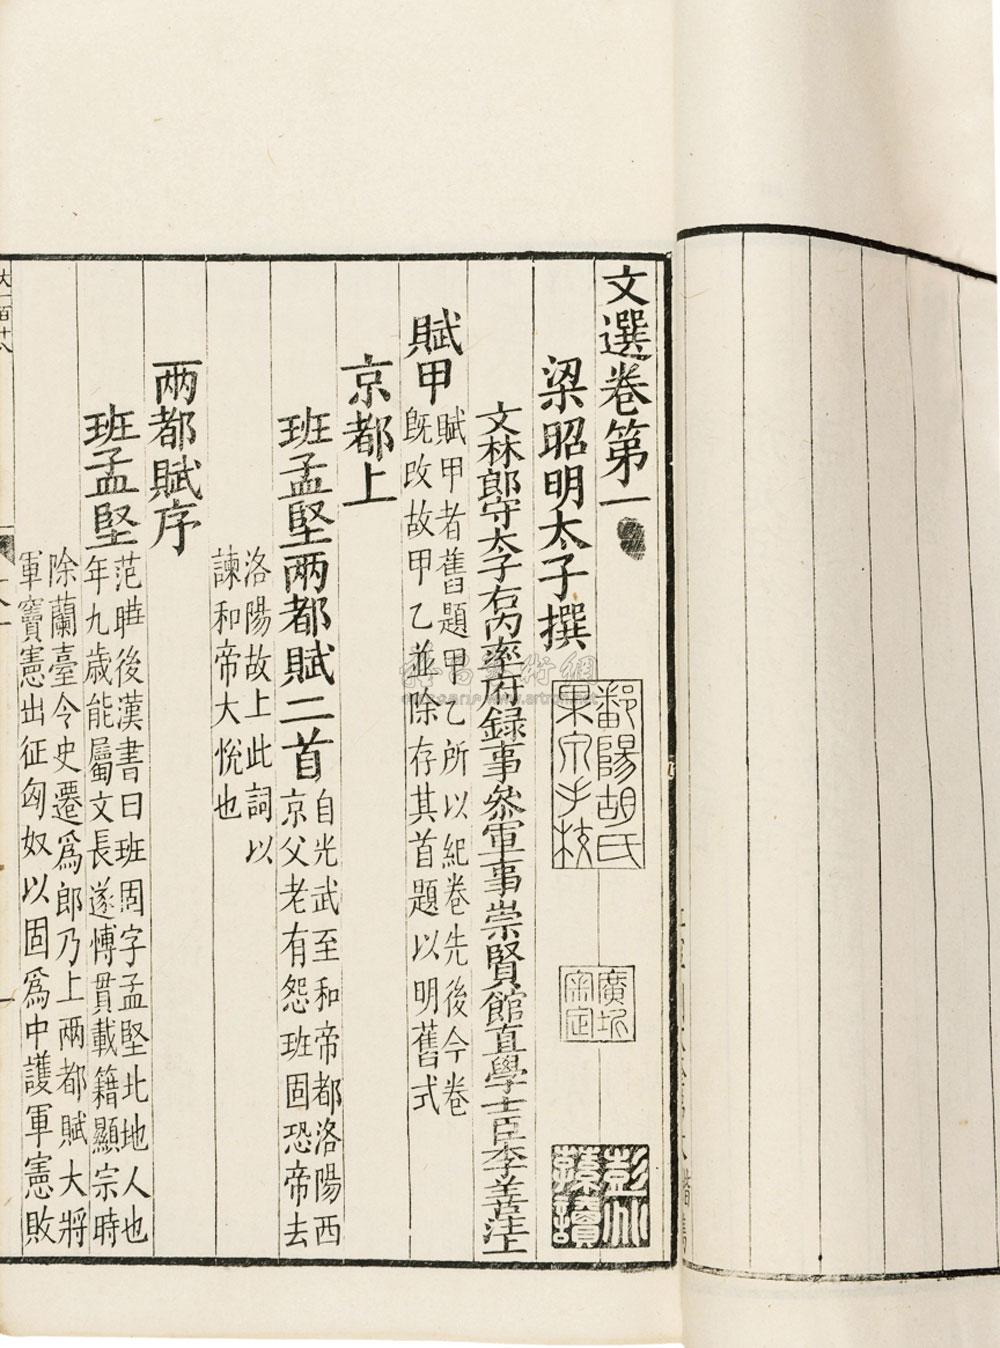 文選卷第一
梁昭明太子撰
文林郎守太子右內率府録事叅軍事崇賢館直學士臣李善注上
賦甲
賦甲者舊題甲乙所以紀卷先後今卷
旣改故甲乙並除存其首題以明舊式
京都上
班孟堅兩都賦二首
自光武至和帝都洛陽西
京父老有怨班固恐帝去
洛陽故上此詞以
諫和帝大悅也
兩都賦序
班孟堅
范曄後漢書曰班固字孟堅北地人也
年九歲能屬文長遂愽貫載籍顯宗時
除蘭臺令史遷爲郎乃上兩都賦大將
軍竇憲出征匈奴以固爲中護軍憲敗
鄱陽胡氏
果泉手校